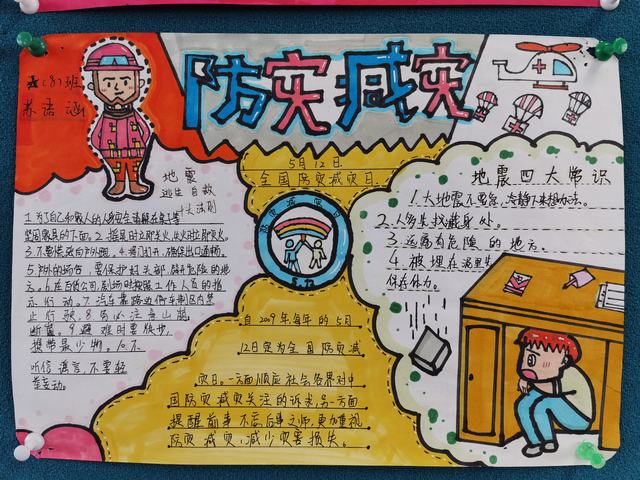 五(8)班
苏语涵
防灾减灾
地震
逃生自救
十大法则
1.为了自己和家人的人身安全请躲在桌子等
坚固家具的下面。2.摇晃时立即关火,失火时立即灭火。
3.不要慌张向户外跑。4.将门打开,确保出口通畅。
5.户外的场合,要保护好头部,避开危险的地
方。6.在百货公司、剧场时按照工作人员的指
示行动。7.汽车靠路边停车,制区内禁
止行驶。8.务必注意山崩
断崖。9.避难时要徒步,
携带最少物。10.不
听信谣言,不要轻
举妄动。
5月12日
全国防灾减灾日
防灾减灾日
5.12
自2009年,每年的5月
12日定为全国防灾减
灾日。一方面顺应社会各界对中
国防灾减灾关注的诉求,另一方面
提醒前事不忘,后事之师,更加重视
防灾减灾,减少灾害损失。
地震四大常识
1.大地震不要急,冷静下来想办法。
2.人多先找藏身处。
3.远离有危险的地方。
4.被埋在
保存体力。